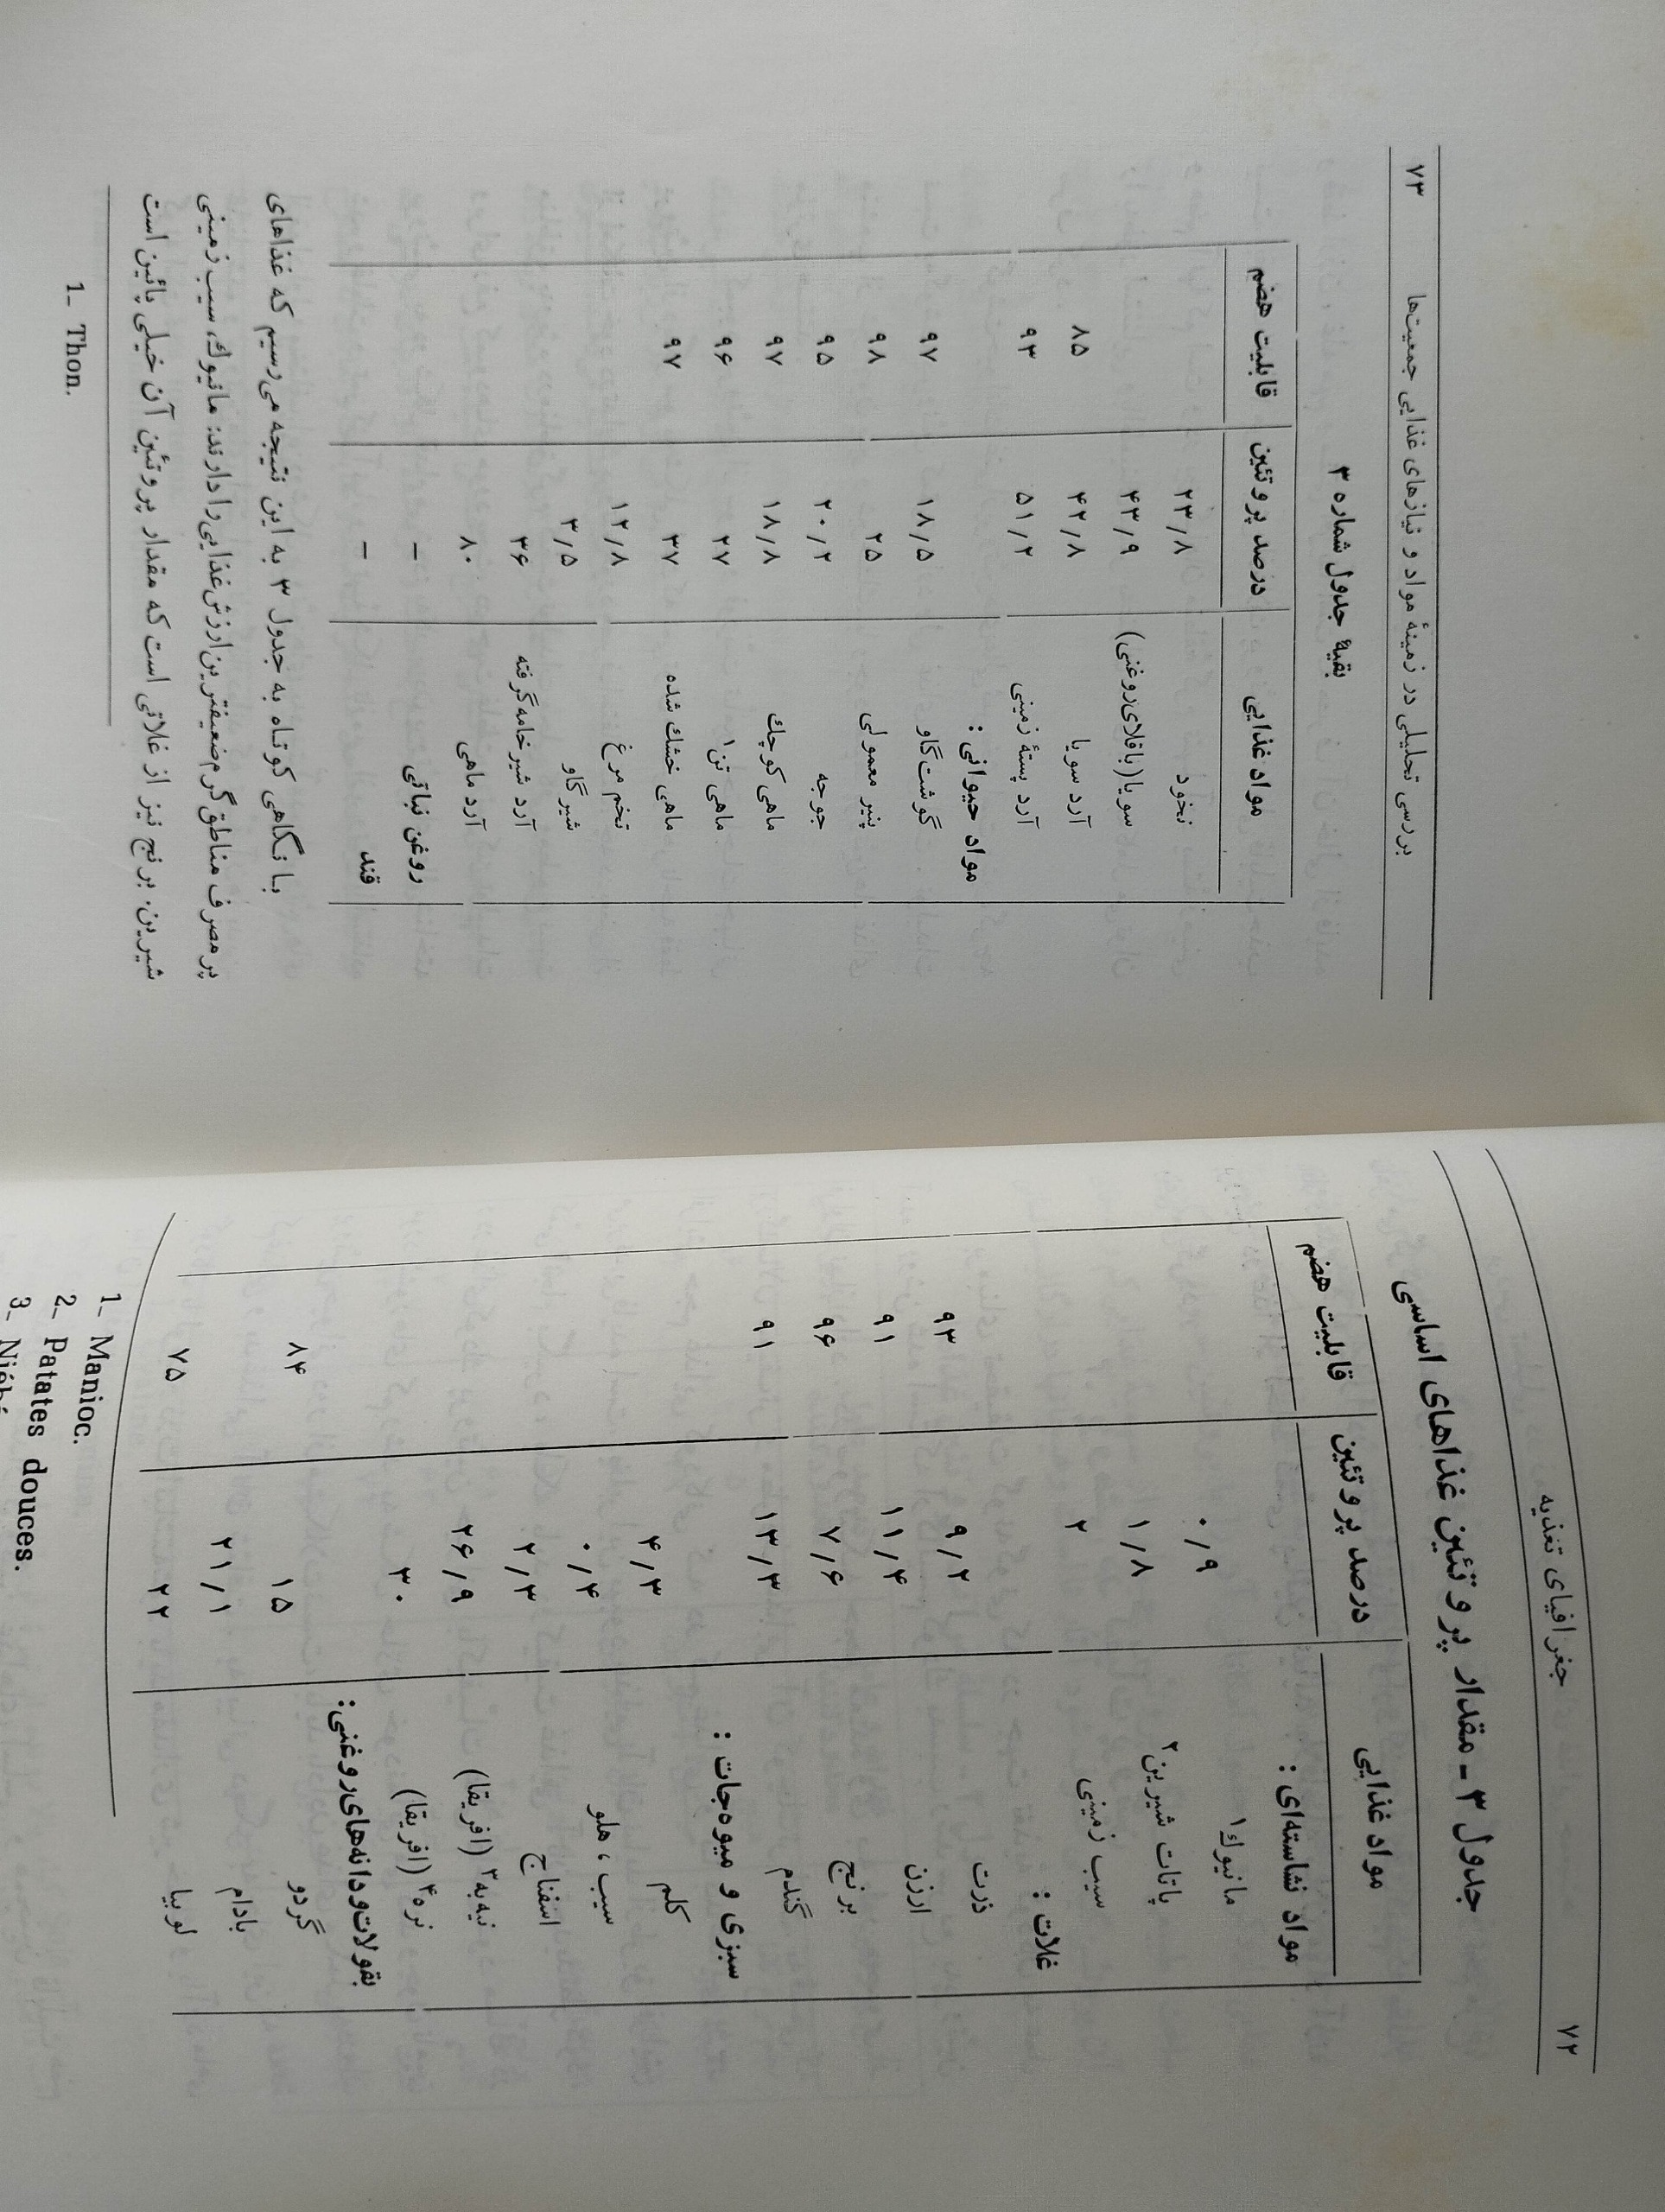 ۷۲ جغرافیای تغذیه
جدول ۳ - مقدار پروتئین غذاهای اساسی
مواد غذایی درصد پروتئین قابلیت هضم
مواد نشاسته‌ای :
مانیوك۱ ۰/۹
پاتات شیرین۲ ۱/۸
سیب زمینی ۲
غلات :
ذرت ۹/۲ ۹۳
ارزن ۱۱/۴ ۹۱
برنج ۷/۶ ۹۶
گندم ۱۳/۳ ۹۱
سبزی و میوه‌جات :
کلم ۴/۳
سیب ، هلو ۰/۴
اسفناج ۲/۳
نیه‌به۳ (افریقا) ۲۶/۹
نره۴ (افریقا) ۳۰
بقولات و دانه‌های روغنی :
گردو ۱۵ ۸۴
بادام ۲۱/۱
لوبیا ۲۲ ۷۵
1_ Manioc.
2_ Patates douces.
3_ Niébé
بررسی تحلیلی در زمینهٔ مواد و نیازهای غذایی جمعیت‌ها ۷۳
بقیهٔ جدول شماره ۳
مواد غذایی درصد پروتئین قابلیت هضم
نخود ۲۳/۸
سویا (باقلای روغنی) ۴۳/۹
آرد سویا ۴۲/۸ ۸۵
آرد پستهٔ زمینی ۵۱/۲ ۹۳
مواد حیوانی :
گوشت گاو ۱۸/۵ ۹۷
پنیر معمولی ۲۵ ۹۸
جوجه ۲۰/۲ ۹۵
ماهی کوچك ۱۸/۸ ۹۷
ماهی تن۱ ۲۷ ۹۶
ماهی خشك شده ۳۷ ۹۷
تخم مرغ ۱۲/۸
شیر گاو ۳/۵
آرد شیر خامه گرفته ۳۶
آرد ماهی ۸۰
روغن نباتی –
قند –
با نگاهی کوتاه به جدول ۳ به این نتیجه می‌رسیم که غذاهای
پر مصرف مناطق گرم ضعیفترین ارزش غذایی را دارند: مانیوك، سیب زمینی
شیرین. برنج نیز از غلاتی است که مقدار پروتئین آن خیلی پائین است
1_ Thon.